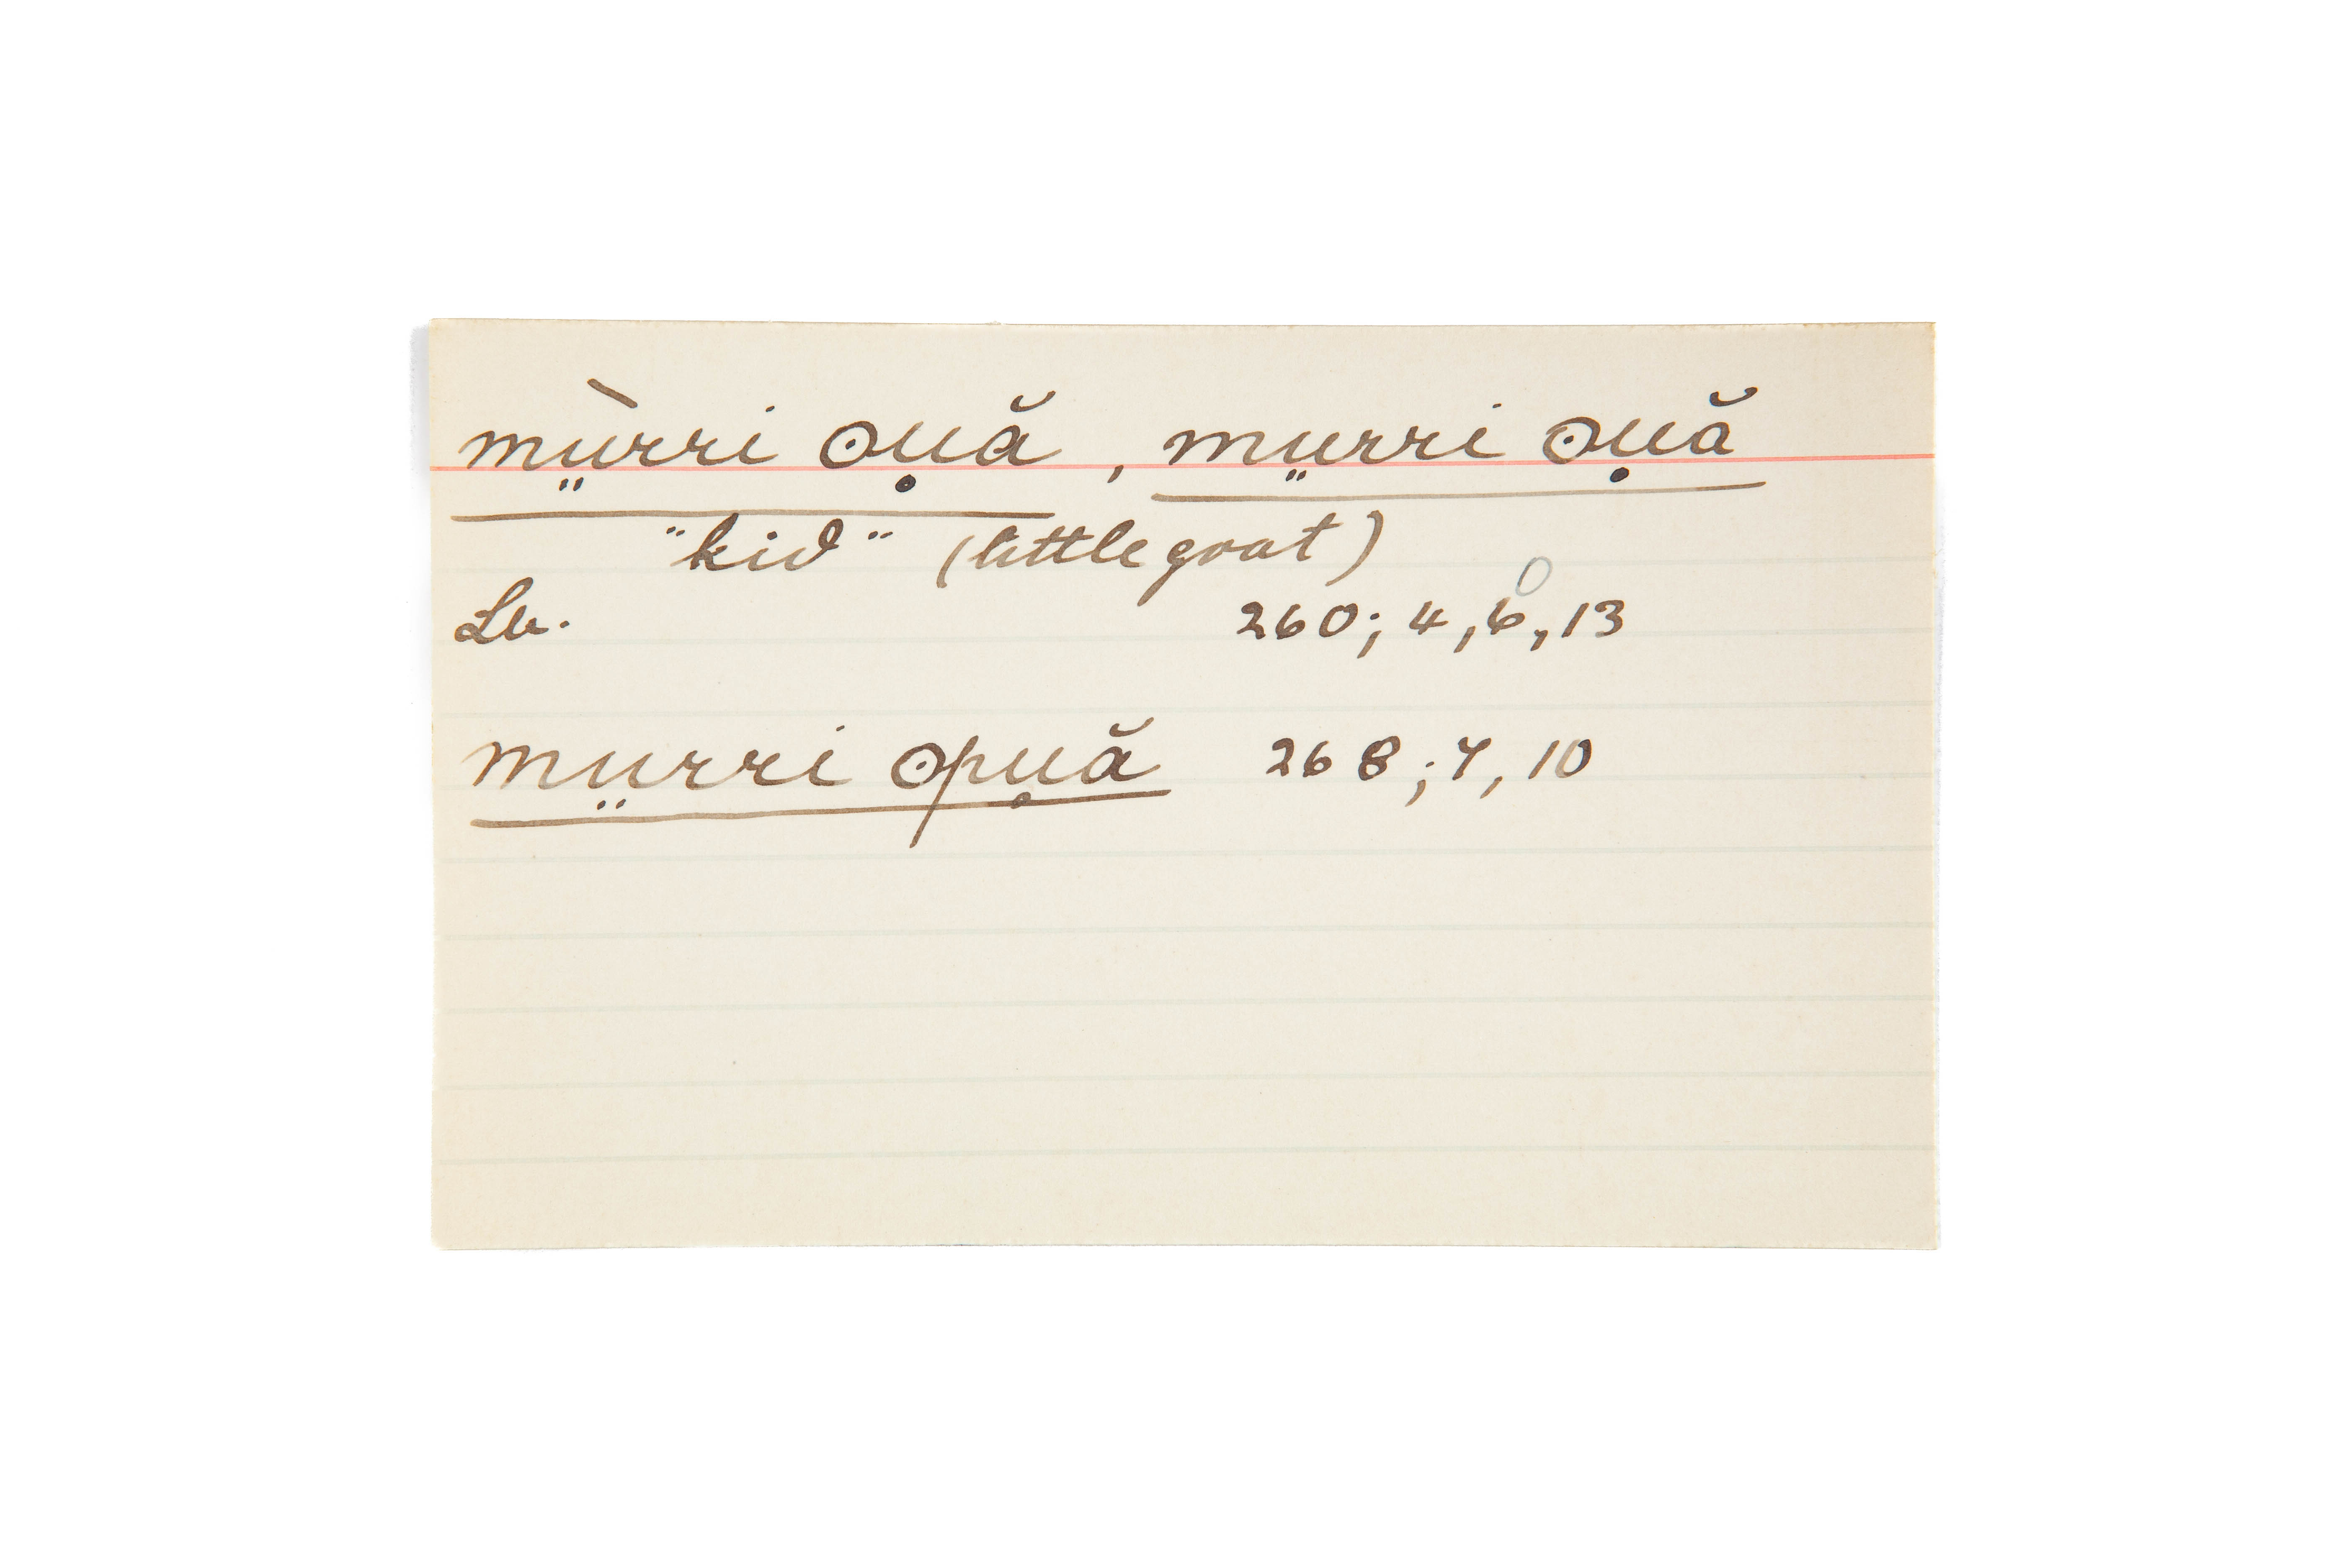 mṳ̀rri ʘụă, mṳrri ʘụă
"kid" (little goat)
Lu. 260; 4, 6, 13
mṳrri ʘpụă 268; 7, 10